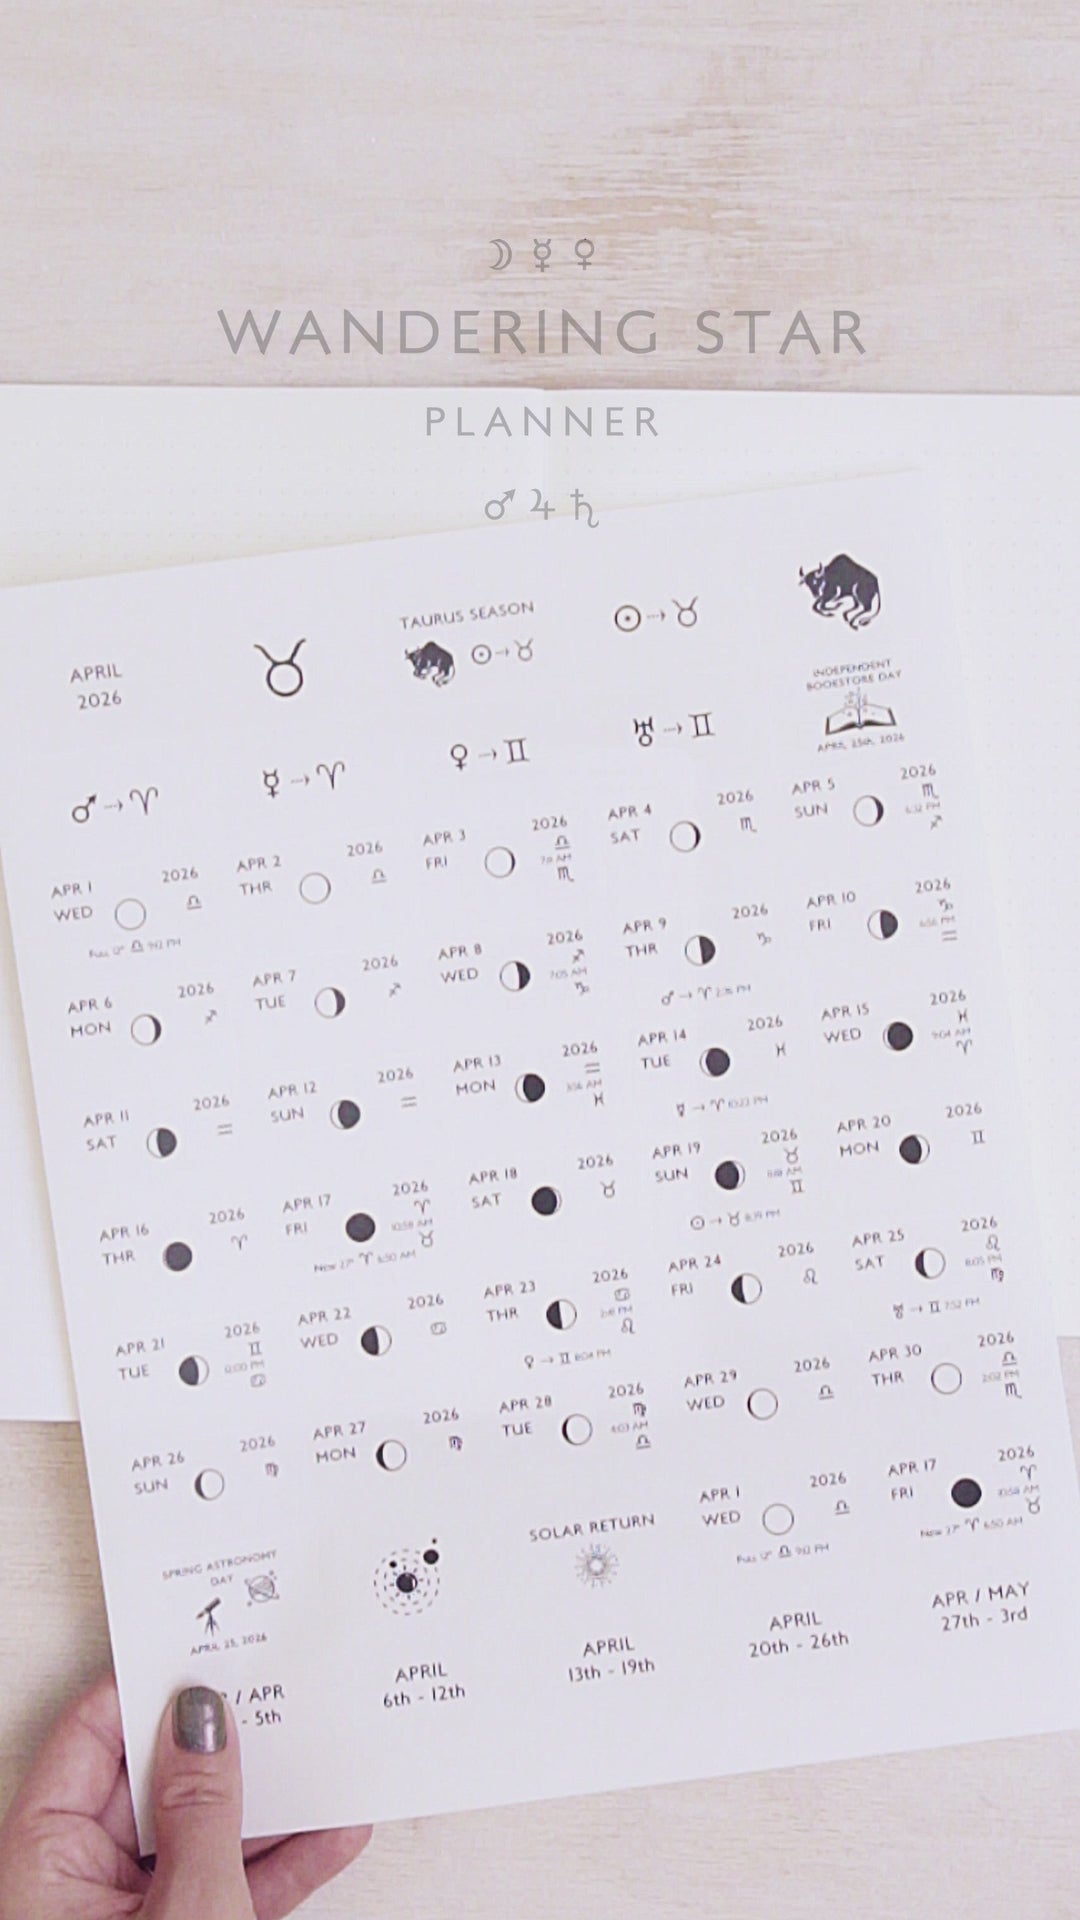 ☽ ☿ ♀
WANDERING STAR
PLANNER
♂ ♃ ♄
APRIL
2026
♉
TAURUS SEASON
☉→♉
☉→♉
INDEPENDENT
BOOKSTORE DAY
APRIL 25th, 2026
♂→♈
☿→♈
♀→♊
♅→♊
APR 1 2026
WED ♎
♎ 9:12 PM
APR 2 2026
THR ♎
APR 3 2026
FRI ♎
♏
APR 4 2026
SAT ♏
APR 5 2026
SUN ♏
♐
APR 6 2026
MON ♐
APR 7 2026
TUE ♐
APR 8 2026
WED ♐
7:05 AM
♑
APR 9 2026
THR ♑
♂→♈
APR 10 2026
FRI ♑
♒
APR 11 2026
SAT ♒
APR 12 2026
SUN ♒
APR 13 2026
MON ♒
♓
APR 14 2026
TUE ♓
☿→♈
APR 15 2026
WED ♓
9:04 AM
♈
APR 16 2026
THR ♈
APR 17 2026
FRI ♈
10:58 AM
♉
New 27° ♈ 6:50 AM
APR 18 2026
SAT ♉
APR 19 2026
SUN ♉
♊
☉→♉
APR 20 2026
MON ♊
APR 21 2026
TUE ♊
12:00 PM
♋
APR 22 2026
WED ♋
APR 23 2026
THR ♋
♌
♀→♊
APR 24 2026
FRI ♌
APR 25 2026
SAT ♌
8:05 PM
♍
♅→♊ 7:52 PM
APR 26 2026
SUN ♍
APR 27 2026
MON ♍
APR 28 2026
TUE ♍
4:03 AM
♎
APR 29 2026
WED ♎
APR 30 2026
THR ♎
2:02 PM
♏
SPRING ASTRONOMY
DAY
APRIL 25, 2026
SOLAR RETURN
APR 1 2026
WED ♎
♎ 9:12 PM
APR 17 2026
FRI ♈
10:58 AM
♉
New 27° ♈ 6:50 AM
/ APR
- 5th
APRIL
6th - 12th
APRIL
13th - 19th
APRIL
20th - 26th
APR / MAY
27th - 3rd